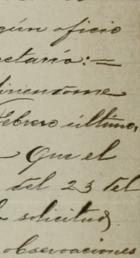 gún oficio
cretaría:=
diriendome
Febrero último,
Que el
del 23 del
solicitud,
observaciones